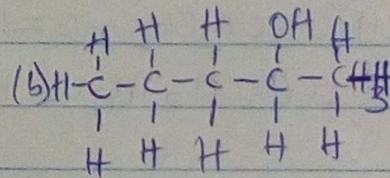 H H H OH H
(b) H-C-C-C-C-C
H H H H H